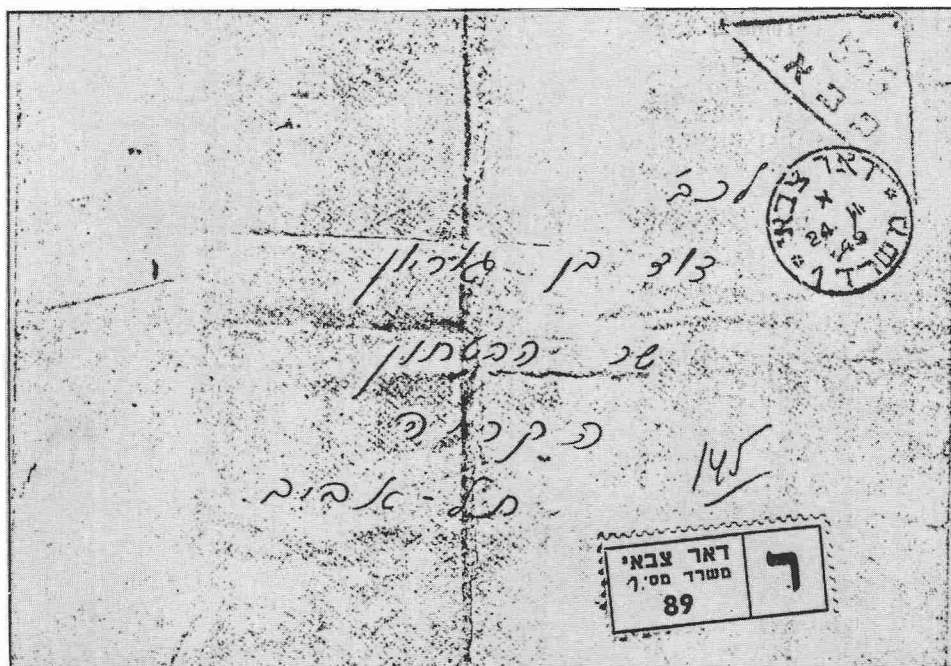 דאר צבאי
24
49
לכב'
דוד בן גוריון
שר הבטחון
הקריה
תל-אביב
145
דאר צבאי
משרד מס'
89
ר